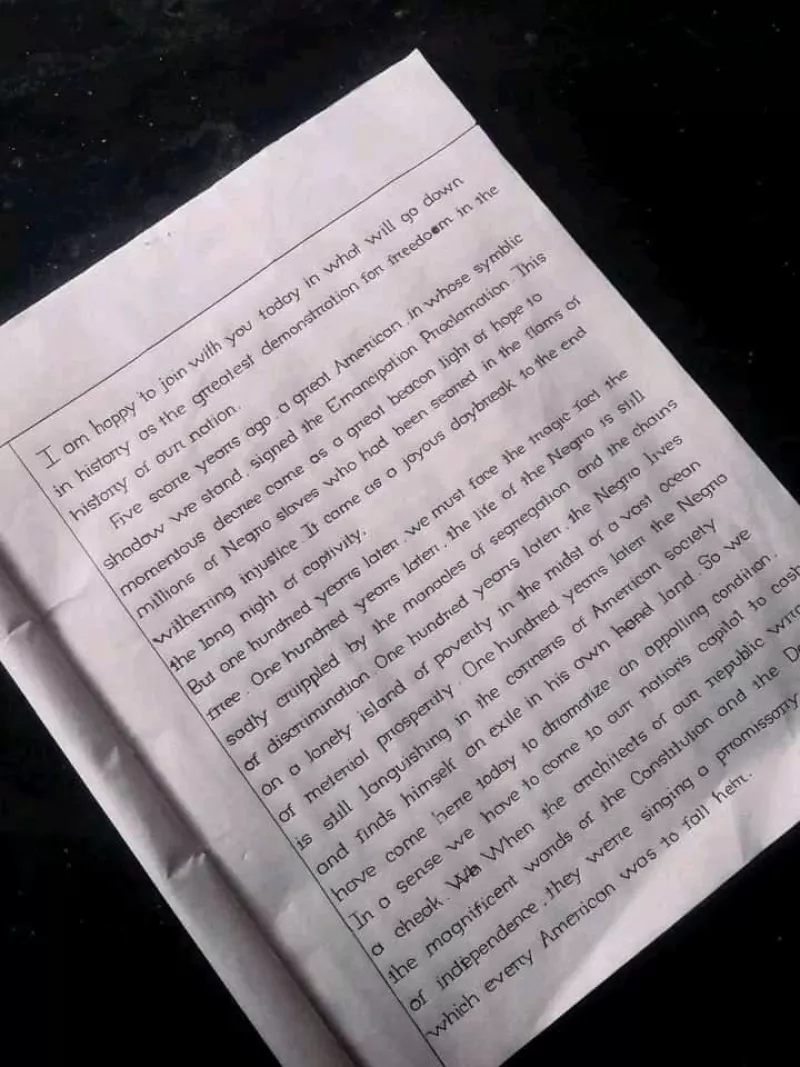 I am happy to join with you today in what will go down
in history as the greatest demonstration for freedom in the
history of our nation.
Five score years ago , a great American , in whose symblic
shadow we stand , signed the Emancipation Proclamation . This
momentous decree came as a great beacon light of hope to
millions of Negro slaves who had been seared in the flams of
witherring injustice . It came as a joyous daybreak to the end
the long night of captivity.
But one hundred years later , we must face the tragic fact the
free . One hundred years later , the life of the Negro is still
sadly cruppled by the manacles of segregation and the chains
of discrimination . One hundred years later , the Negro lives
on a lonely island of poverty in the midst of a vast ocean
of meterial prosperity . One hundred years later the Negro
is still languishing in the corners of American society
and finds himself an exile in his own land . So we
have come here today to dramatize an appalling condition.
In a sense we have to come to our nation's capital to cash
a cheak. When the architects of our republic
the magnificent words of the Constitution and the
of independence , they were singing a promissory
which every American was to fall heir.